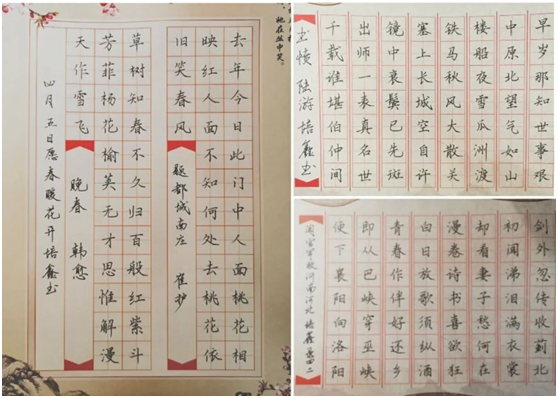 她在丛中笑。
去年今日此门中人面桃花相
映红人面不知何处去桃花依
旧笑春风
题都城南庄 崔护
草树知春不久归百般红紫斗
芳菲杨花榆荚无才思惟解漫
天作雪飞
晚春 韩愈
四月五日愿春暖花开培鑫书
早岁那知世事艰
中原北望气如山
楼船夜雪瓜洲渡
铁马秋风大散关
塞上长城空自许
镜中衰鬓已先斑
出师一表真名世
千载谁堪伯仲间
书愤 陆游 培鑫书
剑外忽传收蓟北
初闻涕泪满衣裳
却看妻子愁何在
漫卷诗书喜欲狂
白日放歌须纵酒
青春作伴好还乡
即从巴峡穿巫峡
便下襄阳向洛阳
闻官军收河南河北 培鑫 四二